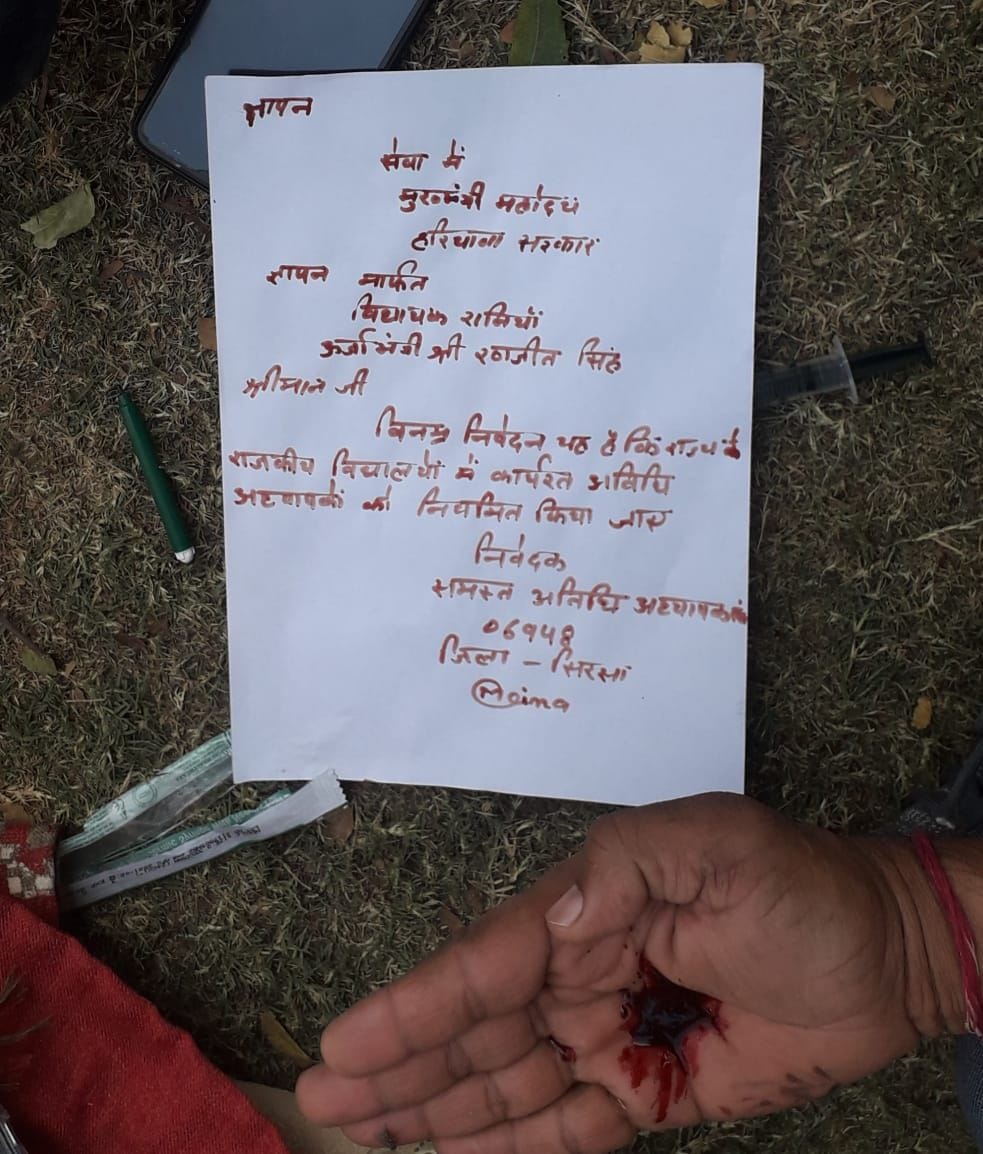 ज्ञापन
सेवा में
मुख्यमंत्री महोदय
हरियाणा सरकार
ज्ञापन मार्फत
विधायक रानियाँ
ऊर्जा मंत्री श्री रणजीत सिंह
श्रीमान जी
विनम्र निवेदन यह है कि राज्य के
राजकीय विद्यालयों में कार्यरत अतिथि
अध्यापकों को नियमित किया जाए
निवेदक
समस्त अतिथि अध्यापक
06948
जिला - सिरसा